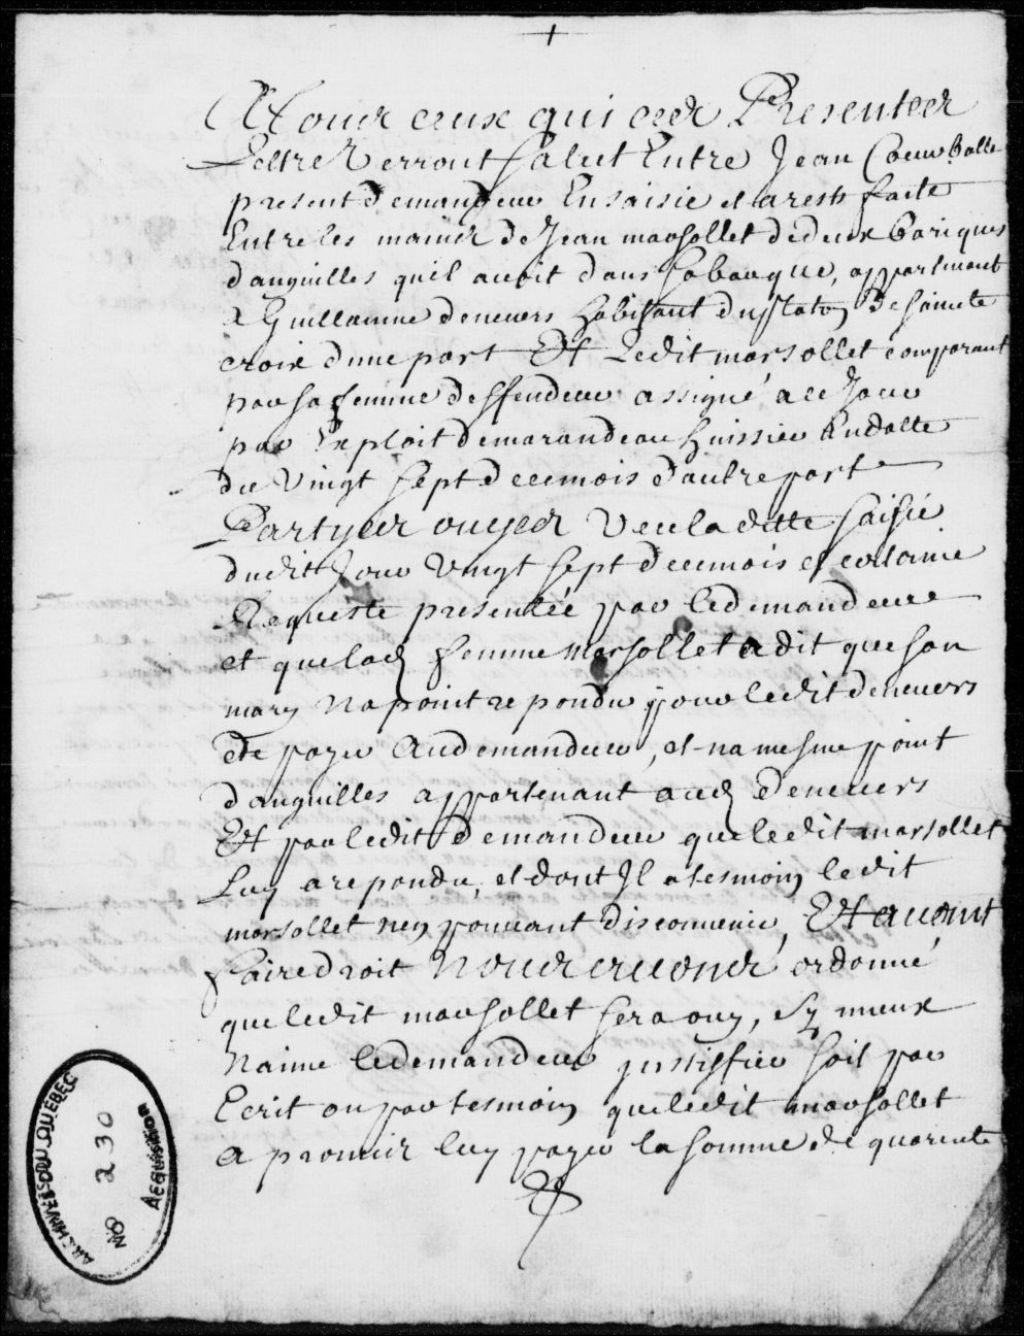 A tous ceux qui ces Presentes
Lettres Verront Salut Entre Jean Coeur Balle
present demandeur En saisie et arests faite
Entre les mains de Jean marsollet de deux bariques
danguilles quil avoit dans sa barque, appartenant
a Guillaume deneuers habitant du platon De Saincte
croix dune part Et Ledit marsollet comparant
par sa femme deffendeur assigné a ce Jour
par Exploit de marandeau huissier En datte
du Vingt sept de ce mois dautre part
Partyes ouyes Veu la ditte saisie
dudit Jour Vingt sept de ce mois et
Requeste presentée par ledemandeur
et que lad femme Marsollet a dit que son
mary Na point repondu pour ledit deneuers
de payer Audemandeur, et na mesme point
danguilles appartenant aud deneuers
Et par ledit demandeur que ledit marsollet
Luy a repondu, et dont Il a tesmoin ledit
marsollet ney pouvant disconvenir, Et avant
faire droit Nous avons ordonné
que ledit marsollet sera ouy, sy mieux
Naime ledemandeur justiffier soit par
Ecrit ou par tesmoin que ledit marsollet
a promis luy payer la somme de quarente
ARCHIVES DU QUÉBEC
No 230
ACQUISITION